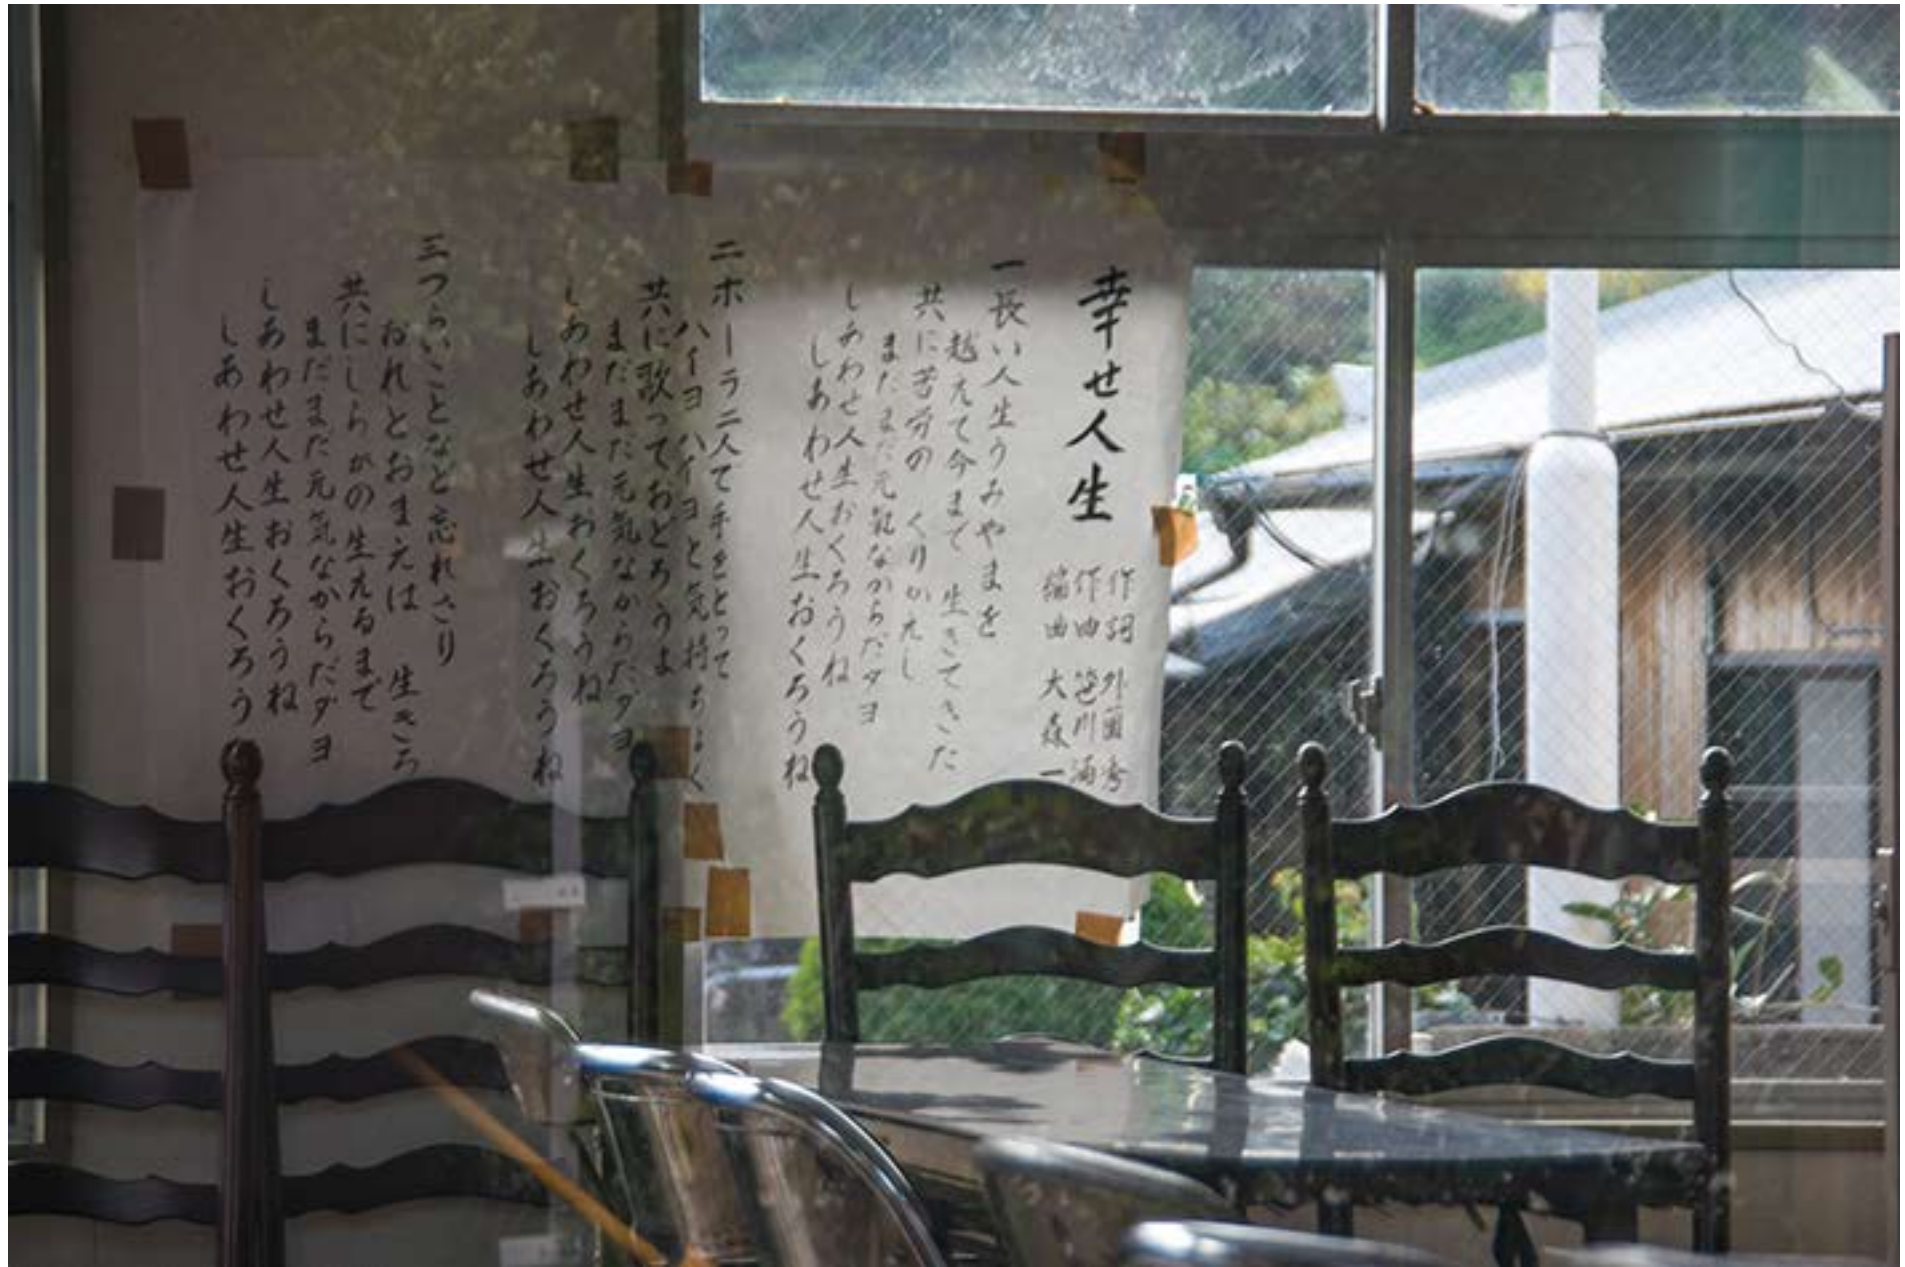 幸せ人生
作詞 外薗 秀
作曲 笹川 満
編曲 大森 一
一長い人生うみやまを
越えて今まで 生きてきた
共に苦労の くりかえし
まだまだ元気ながらだダヨ
しあわせ人生おくろうね
しあわせ人生おくろうね
二ホーラ二人で手をとって
ハイヨハイヨと気持ちよく
共に歌っておどろうよ
まだまだ元気なからだダヨ
しあわせ人生おくろうね
しあわせ人生おくろうね
三つらいことなど忘れさり
おれとおまえは 生きろ
共にしらがの生えるまで
まだまだ元気なからだダヨ
しあわせ人生おくろうね
しあわせ人生おくろう